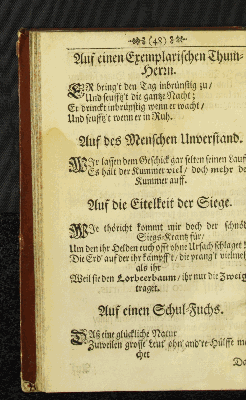 (48)
Auf einen Exemplarischen Thum-
Herrn.
ER bringt den Tag inbrünstig zu /
Und seufftzt die gantze Nacht;
Er trinckt inbrünstig wenn er wacht /
Und seufftzt wenn er in Ruh.
Auf des Menschen Unverstand.
WIr lassen dem Geschick gar selten seinen Lauf
Es hält der Kummer viel / doch mehr de
Kummer auff.
Auf die Eitelkeit der Siege.
WIe thöricht kommt mir doch der schnöd
Siegs-Krantz für /
Um den ihr Helden euch offt ohne Ursach schlaget
Die Erd' auf der ihr kämpfft / die prangt vielmeh
als ihr
Weil sie den Lorbeerbaum / ihr nur die Zweig
traget.
Auf einen Schul-Fuchs.
DAß eine glückliche Natur
Zuweilen grosse Leut' ohn' andre Hülffe ma
chet
Da